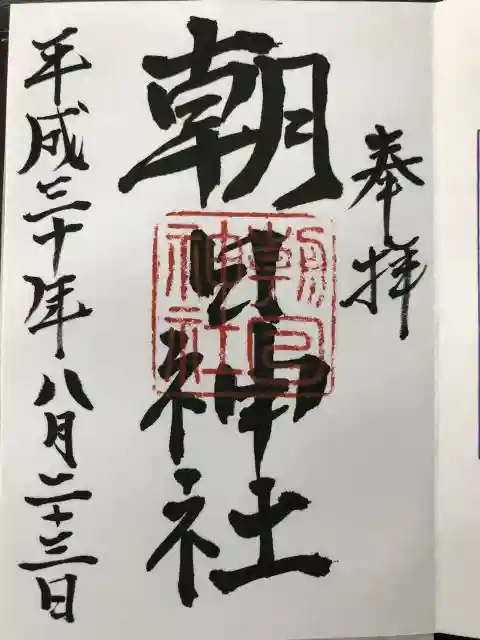 奉拝
朝日神社
朝日
神社
平成三十年八月二十三日